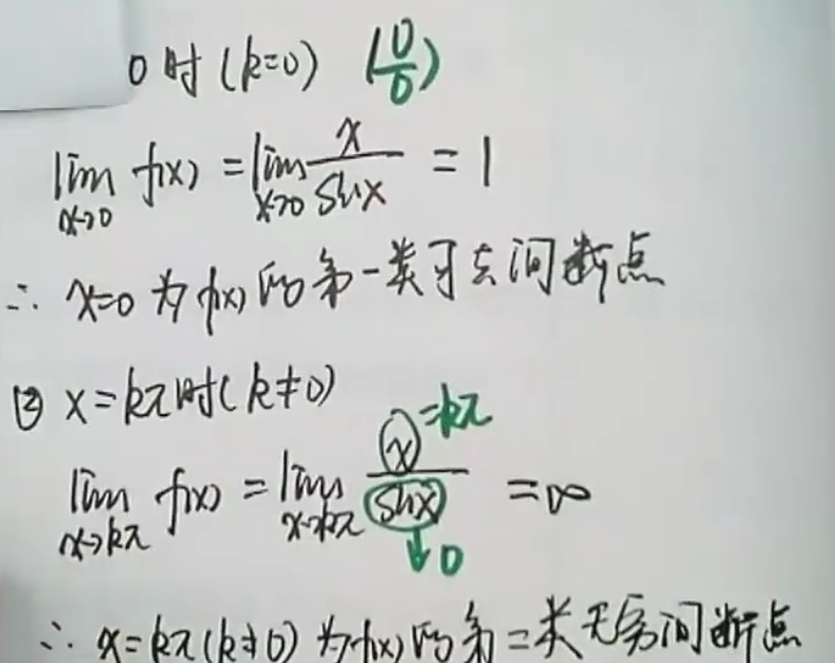 0时(k=0) (0/0)
lim x→0 f(x) = lim x→0 x/sinx = 1
∴ x=0为f(x)的第一类可去间断点
② x=kπ时(k≠0)
lim x→kπ f(x) = lim x→kπ x/sinx = ∞
=kπ
↓0
∴ x=kπ(k≠0)为f(x)的第二类无穷间断点